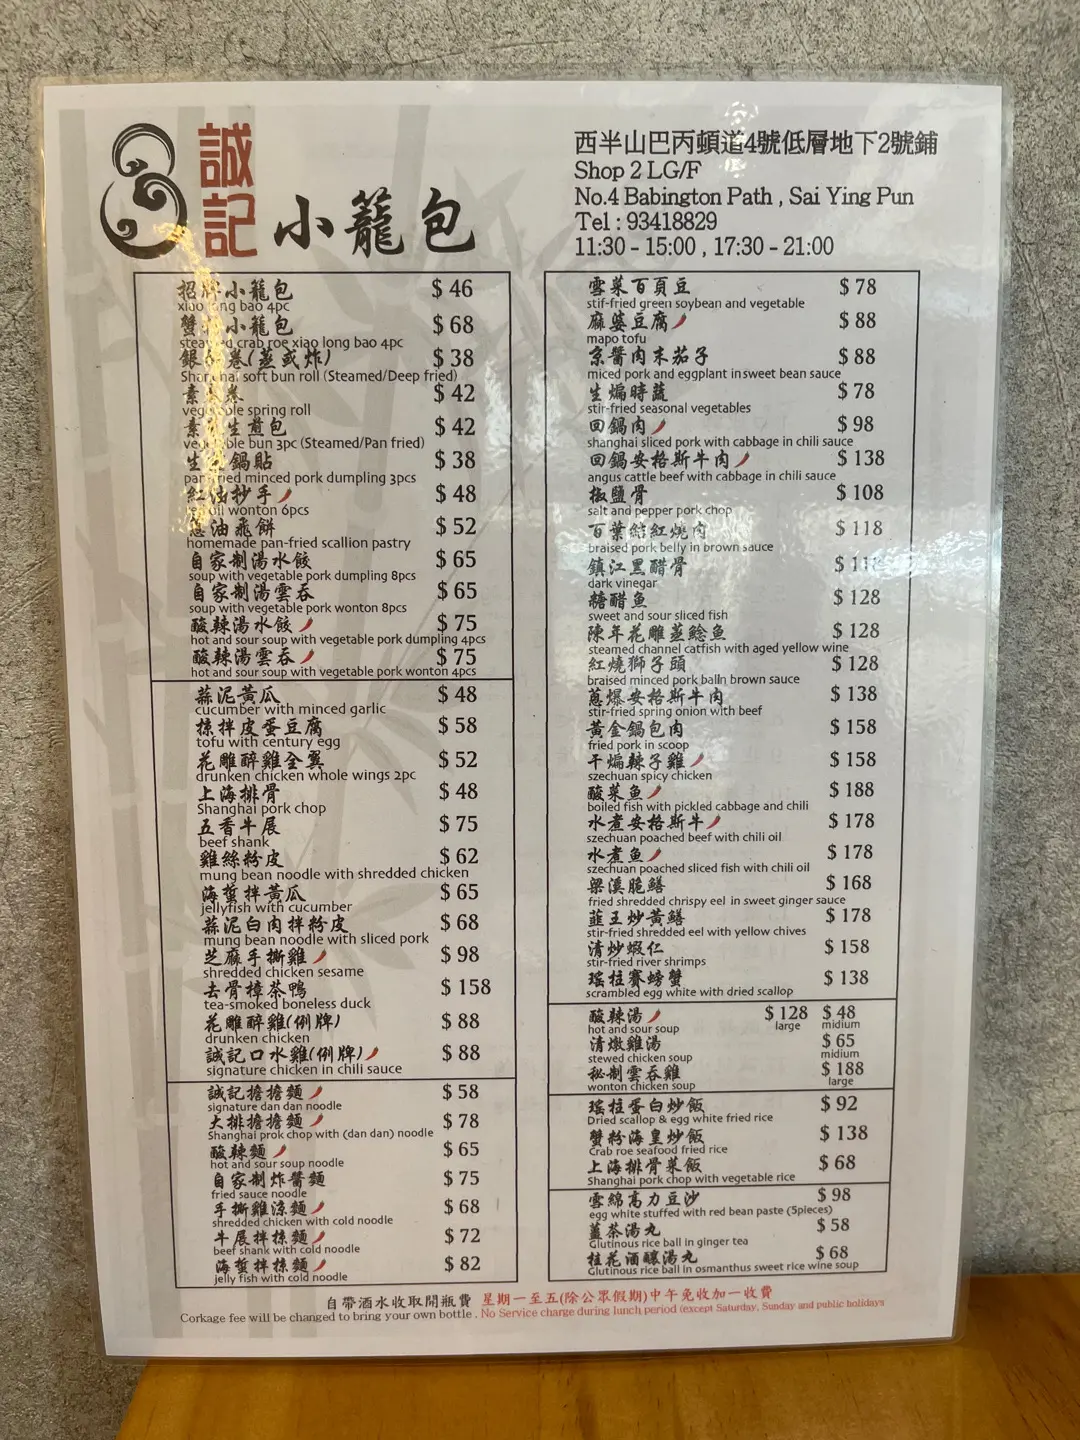 誠記
小籠包
西半山巴丙頓道4號低層地下2號鋪
Shop 2 LG/F
No.4 Babington Path , Sai Ying Pun
Tel : 93418829
11:30 - 15:00 , 17:30 - 21:00
招牌小籠包 $ 46
ng bao 4pc
蟹 小籠包 $ 68
crab roe xiao long bao 4pc
銀 卷(蒸或炸) $ 38
soft bun roll (Steamed/Deep fried)
素 卷 $ 42
spring roll
素 生煎包 $ 42
bun 3pc (Steamed/Pan fried)
生 鍋貼 $ 38
minced pork dumpling 3pcs
紅油抄手 $ 48
oil wonton 6pcs
蔥油飛餅 $ 52
homemade pan-fried scallion pastry
自家制湯水餃 $ 65
soup with vegetable pork dumpling 8pcs
自家制湯雲吞 $ 65
soup with vegetable pork wonton 8pcs
酸辣湯水餃 $ 75
hot and sour soup with vegetable pork dumpling 4pcs
酸辣湯雲吞 $ 75
hot and sour soup with vegetable pork wonton 4pcs
蒜泥黃瓜 $ 48
cucumber with minced garlic
掠拌皮蛋豆腐 $ 58
tofu with century egg
花雕醉雞全翼 $ 52
drunken chicken whole wings 2pc
上海排骨 $ 48
Shanghai pork chop
五香牛展 $ 75
beef shank
雞絲粉皮 $ 62
mung bean noodle with shredded chicken
海蜇拌黃瓜 $ 65
jellyfish with cucumber
蒜泥白肉拌粉皮 $ 68
mung bean noodle with sliced pork
芝麻手撕雞 $ 98
shredded chicken sesame
去骨樟茶鴨 $ 158
tea-smoked boneless duck
花雕醉雞(例牌) $ 88
drunken chicken
誠記口水雞(例牌) $ 88
signature chicken in chili sauce
誠記擔擔麵 $ 58
signature dan dan noodle
大排擔擔麵 $ 78
Shanghai prok chop with (dan dan) noodle
酸辣麵 $ 65
hot and sour soup noodle
自家制炸醬麵 $ 75
fried sauce noodle
手撕雞涼麵 $ 68
shredded chicken with cold noodle
牛展拌掠麵 $ 72
beef shank with cold noodle
海蜇拌掠麵 $ 82
jelly fish with cold noodle
雪菜百頁豆 $ 78
stif-fried green soybean and vegetable
麻婆豆腐 $ 88
mapo tofu
京醬肉末茄子 $ 88
miced pork and eggplant in sweet bean sauce
生煸時蔬 $ 78
stir-fried seasonal vegetables
回鍋肉 $ 98
shanghai sliced pork with cabbage in chili sauce
回鍋安格斯牛肉 $ 138
angus cattle beef with cabbage in chili sauce
椒鹽骨 $ 108
salt and pepper pork chop
百葉結紅燒肉 $ 118
braised pork belly in brown sauce
鎮江黑醋骨
dark vinegar
糖醋魚 $ 128
sweet and sour sliced fish
陳年花雕蒸鯰魚 $ 128
steamed channel catfish with aged yellow wine
紅燒獅子頭 $ 128
braised minced pork balln brown sauce
蔥爆安格斯牛肉 $ 138
stir-fried spring onion with beef
黃金鍋包肉 $ 158
fried pork in scoop
干煸辣子雞 $ 158
szechuan spicy chicken
酸菜魚 $ 188
boiled fish with pickled cabbage and chili
水煮安格斯牛 $ 178
szechuan poached beef with chili oil
水煮魚 $ 178
szechuan poached sliced fish with chili oil
梁溪脆鱔 $ 168
fried shredded chrispy eel in sweet ginger sauce
韮王炒黃鱔 $ 178
stir-fried shredded eel with yellow chives
清炒蝦仁 $ 158
stir-fried river shrimps
瑤柱賽螃蟹 $ 138
scrambled egg white with dried scallop
酸辣湯 $ 128 $ 48
hot and sour soup large midium
清燉雞湯 $ 65
stewed chicken soup midium
秘制雲吞雞 $ 188
wonton chicken soup large
瑤柱蛋白炒飯 $ 92
Dried scallop & egg white fried rice
蟹粉海皇炒飯 $ 138
Crab roe seafood fried rice
上海排骨菜飯 $ 68
Shanghai pork chop with vegetable rice
雪綿高力豆沙 $ 98
egg white stuffed with red bean paste (5pieces)
薑茶湯丸 $ 58
Glutinous rice ball in ginger tea
桂花酒釀湯丸 $ 68
Glutinous rice ball in osmanthus sweet rice wine soup
自帶酒水收取開瓶費 星期一至五(除公眾假期)中午免收加一收費
Corkage fee will be changed to bring your own bottle . No Service charge during lunch period (except Saturday, Sunday and public holidays